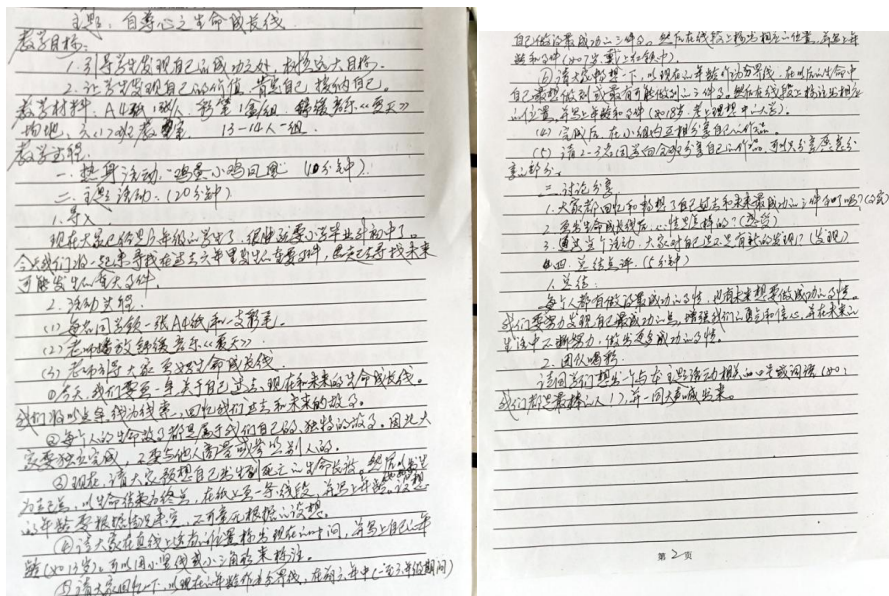 主题：自尊心之生命成长线
教学目标：
1. 引导学生发现自己的成功之处，树立远大目标。
2. 让学生发现自己的价值，肯定自己，接纳自己。
教学材料：A4纸1张/人，彩笔1盒/组，舒缓音乐《夏天》
场地：六(1)班教室 13-14人一组
教学过程：
一、热身活动：“鸡蛋小鸡凤凰”(10分钟)
二、主题活动：(20分钟)
1. 导入
现在大家已经是六年级的学生了，很快就要小学毕业升初中了。
今天我们将一起来寻找在过去六年里发生的重要事件，然后去寻找未来
可能发生的重大事件。
2. 活动过程：
(1) 每名同学领一张A4纸和一支彩笔。
(2) 老师播放舒缓音乐《夏天》
(3) 老师引导大家画出生命成长线。
①今天，我们要画一条关于自己过去、现在和未来的生命成长线。
我们将以点串线为线索，回忆我们过去和未来的故事。
②每个人的生命故事都是属于我们自己的、独特的故事。因此大
家要独立完成，不要与他人商量或参照别人的。
③现在，请大家预想自己出生到死亡的生命长故，然后以出生
为起点，以生命结束为终点，在纸上画一条线段，并写上年龄。设想
的年龄要根据情况来定，不可毫无根据的设想。
④请大家在直线上适当的位置标出现在的时间，并写上自己的年
龄(如13岁)。可以用小竖线或小三角形来标注。
⑤请大家回忆一下，以现在的年龄作为分界线，在前六年中(一至六年级期间)
自己做的最成功的三件事。然后在线段上标出相应的位置，并写上年
龄和事件(如7岁，戴上红领巾)。
⑥请大家畅想一下，以现在的年龄作为分界线，在以后的生命中
自己最想做到或最有可能做到的三件事。然后在线段上标注出相应
的位置，并写上年龄和事件(如18岁，考上理想中的大学)。
(4) 完成后，在小组内互相分享自己的作品。
(5) 请2-3名同学向全班分享自己的作品，可以只分享愿意分
享的部分。
三、讨论分享
1. 大家都回忆和畅想了自己过去和未来最成功的三件事了吗？(事实)
2. 画出生命成长线后，心情是怎样的？(感受)
3. 通过这个活动，大家对自己还有没有新的发现？(发现)
四、总结点评：(5分钟)
1. 总结：
每个人都有做的最成功的事情，也有未来想要做成功的事情。
我们要努力发现自己最成功的点，增强我们的勇气和信心，并在未来的
生活中不断努力，做出更多成功的事情。
2. 团队喝彩
请同学们想出一个与本主题活动相关的口号或词语(如：
我们都是最棒的人！)，并一同大声喊出来。
第2页